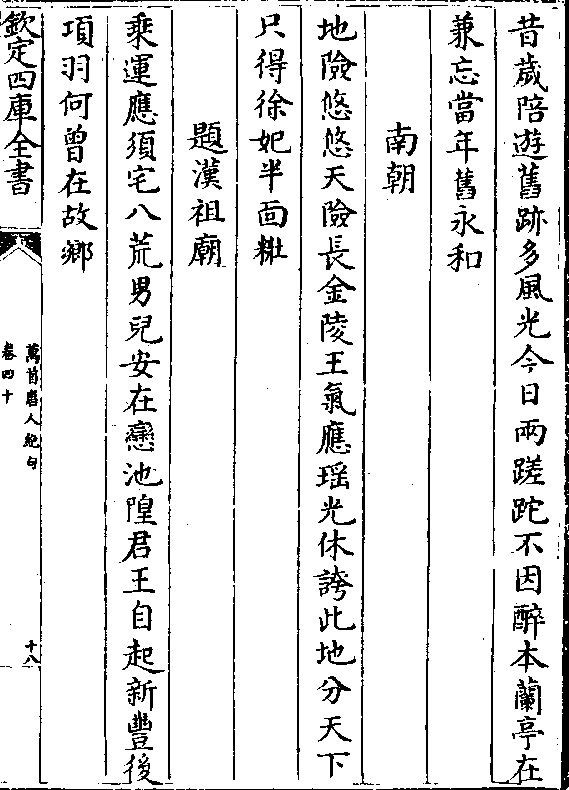 昔歲陪遊舊跡多風光今日兩蹉跎不因醉本蘭亭在
兼忘當年舊永和
南朝
地險悠悠天險長金陵王氣應瑶光休誇此地分天下
只得徐妃半面粧
題漢祖廟
乘運應須宅八荒男兒安在戀池隍君王自起新豐後
項羽何曾在故鄉
欽定四庫全書
萬首唐人絶句
卷四十
十八